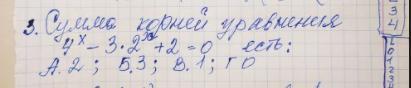 3. Сумма корней уравнения
4ˣ - 3·2ˣ + 2 = 0 есть:
А. 2; Б. 3; В. 1; Г 0
3
4